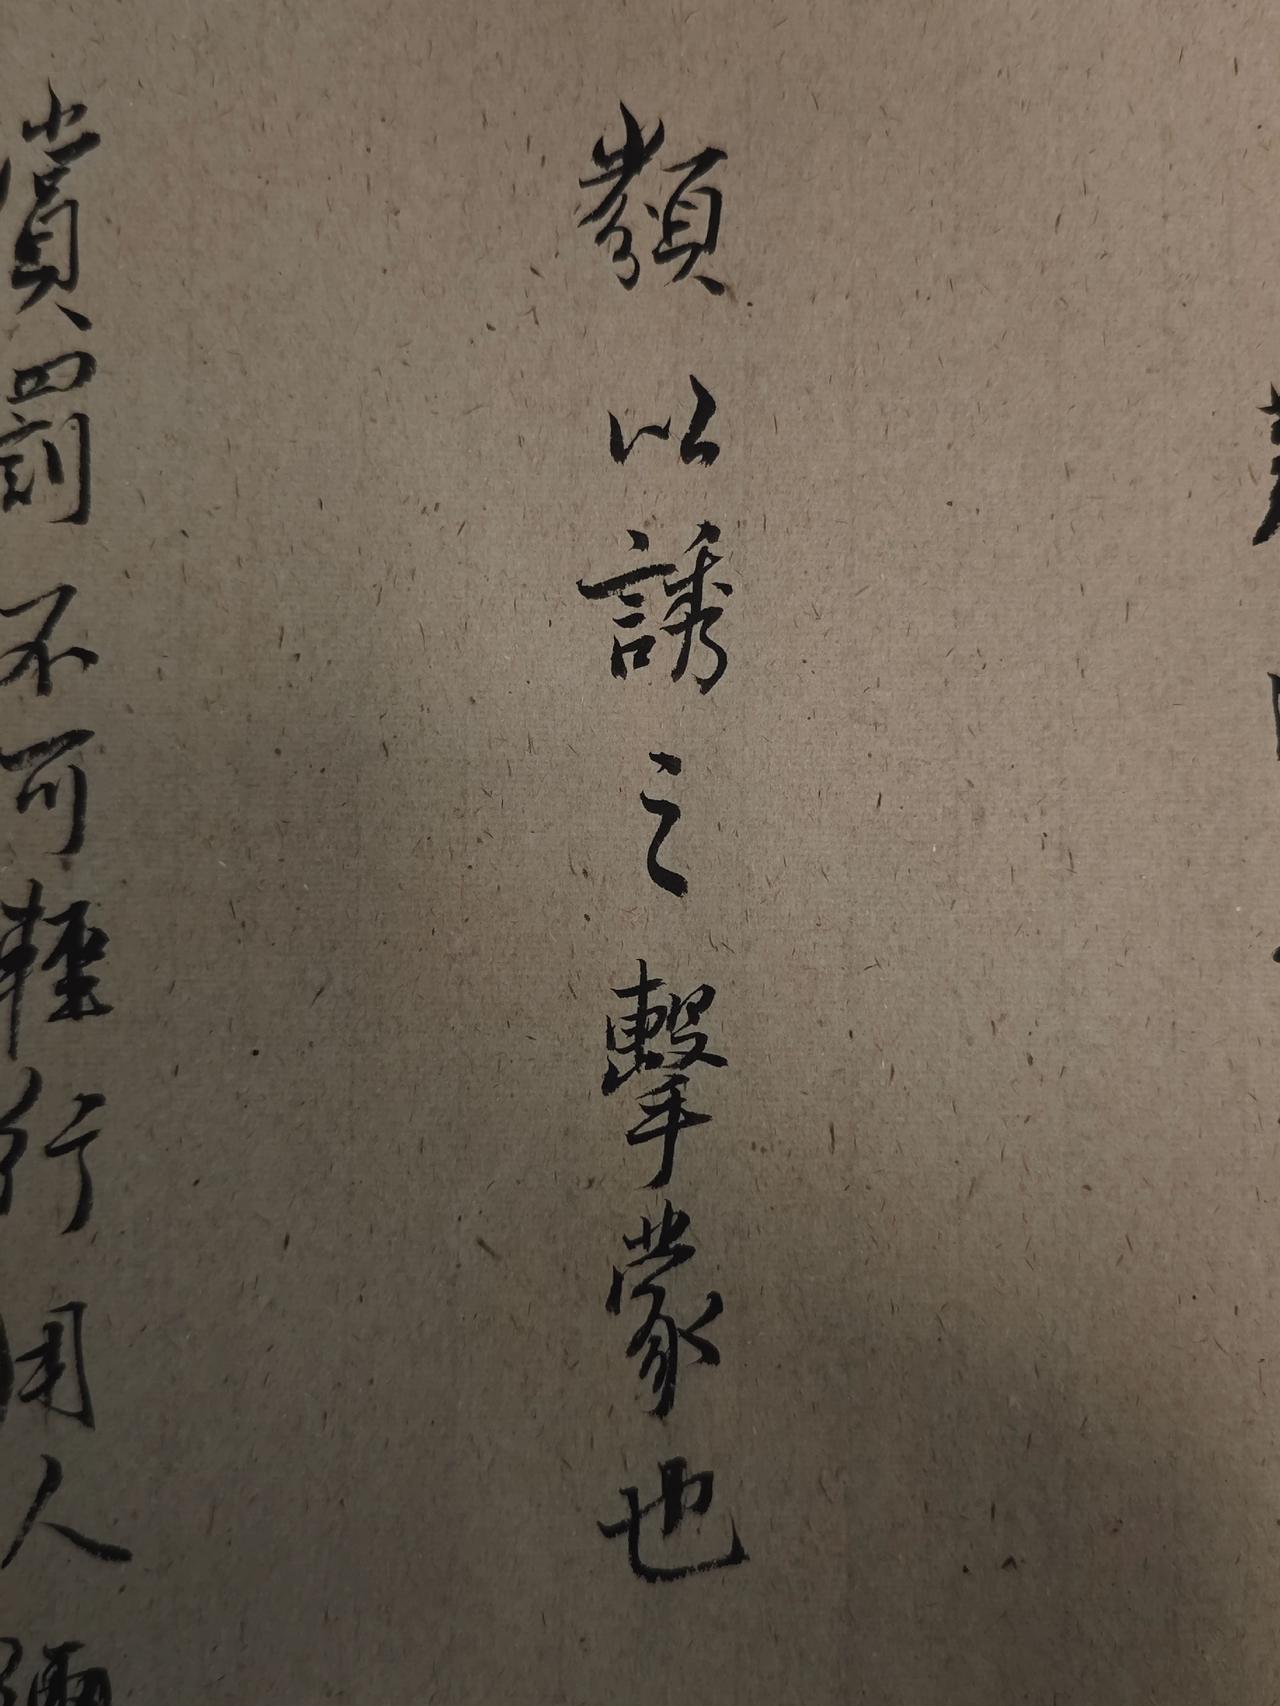 類以誘之擊蒙也
賞罰不可輕行用人彌